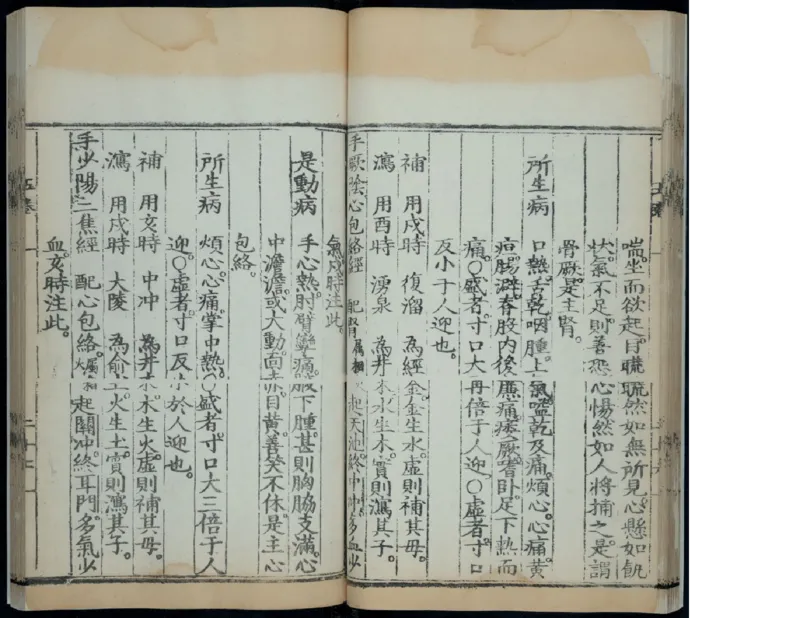 喘。坐而欲起。目䀮䀮然如無所見。心懸如飢
狀。氣不足。則善恐。心惕然如人將捕之。是謂
骨厥。是主腎。
所生病 口熱。舌乾。咽腫。上氣。嗌乾及痛。煩心。心痛。黃
疸。腸澼。脊股內後廉痛。痿厥。嗜卧。足下熱而
痛。○盛者。寸口大再倍于人迎。○虛者。寸口
反小于人迎也。
補 用戌時 復溜 為經金。金生水。虛則補其母。
瀉 用酉時 湧泉 為井木。水生木。實則瀉其子。
手厥陰心包絡經 配腎屬相火。起天池。終中冲。多血少
氣。戌時注此。
是動病 手心熱。肘臂攣痛。腋下腫。甚則胸脇支滿。心
中澹澹。或大動。面赤目黃。善笑不休。是主心
包絡。
所生病 煩心。心痛。掌中熱。○盛者。寸口大三倍于人
迎。○虛者。寸口反小於人迎也。
補 用亥時 中冲 為井木。木生火。虛則補其母。
瀉 用戌時 大陵 為俞土。火生土。實則瀉其子。
手少陽三焦經 配心包絡。屬相火。起關冲。終耳門。多氣少
血。亥時注此。
五卷